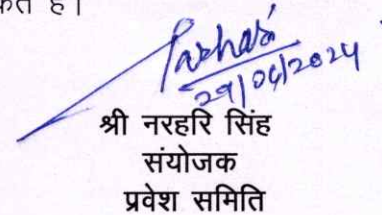 हैं।
Narhari
29/04/2024
श्री नरहरि सिंह
संयोजक
प्रवेश समिति